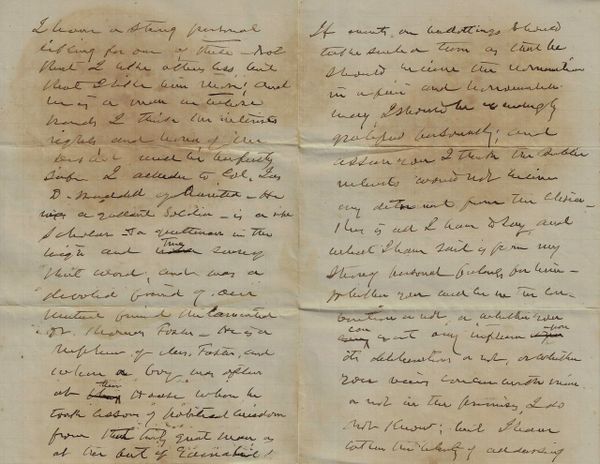 I have a strong personal
liking for one of these - not
that I like others less, but
that I like him more; and
he is a man in whose
hands I think the interests
rights and honor of the
will be perfectly
safe I allude to Col. Jas
D. Waddell of Marietta - He
was a gallant Soldier - is a
Scholar - a gentleman in the
high and true sense
that word, and was a
devoted friend of our
mutual friend the lamented
Dr. Thomas Foster - He is a
nephew of Mrs. Foster, and
when a boy was often
at their House, when he
took lessons of political wisdom
from that truly great man
at
If events or ballottings should
take such a turn as that he
should receive the nomination
in a fair and honorable
way I should be exceedingly
gratified personally; and
assure you I think the public
interests would not receive
any detriment from the choice -
This is all I have to say, and
what I have said is from my
strong personal feelings for him -
Whether you will be in the con-
vention or not, or whether you
can exert any influence upon
its deliberations or not, or whether
your views concur with mine
or not in the premises, I do
not know; but I have
taken the liberty of addressing